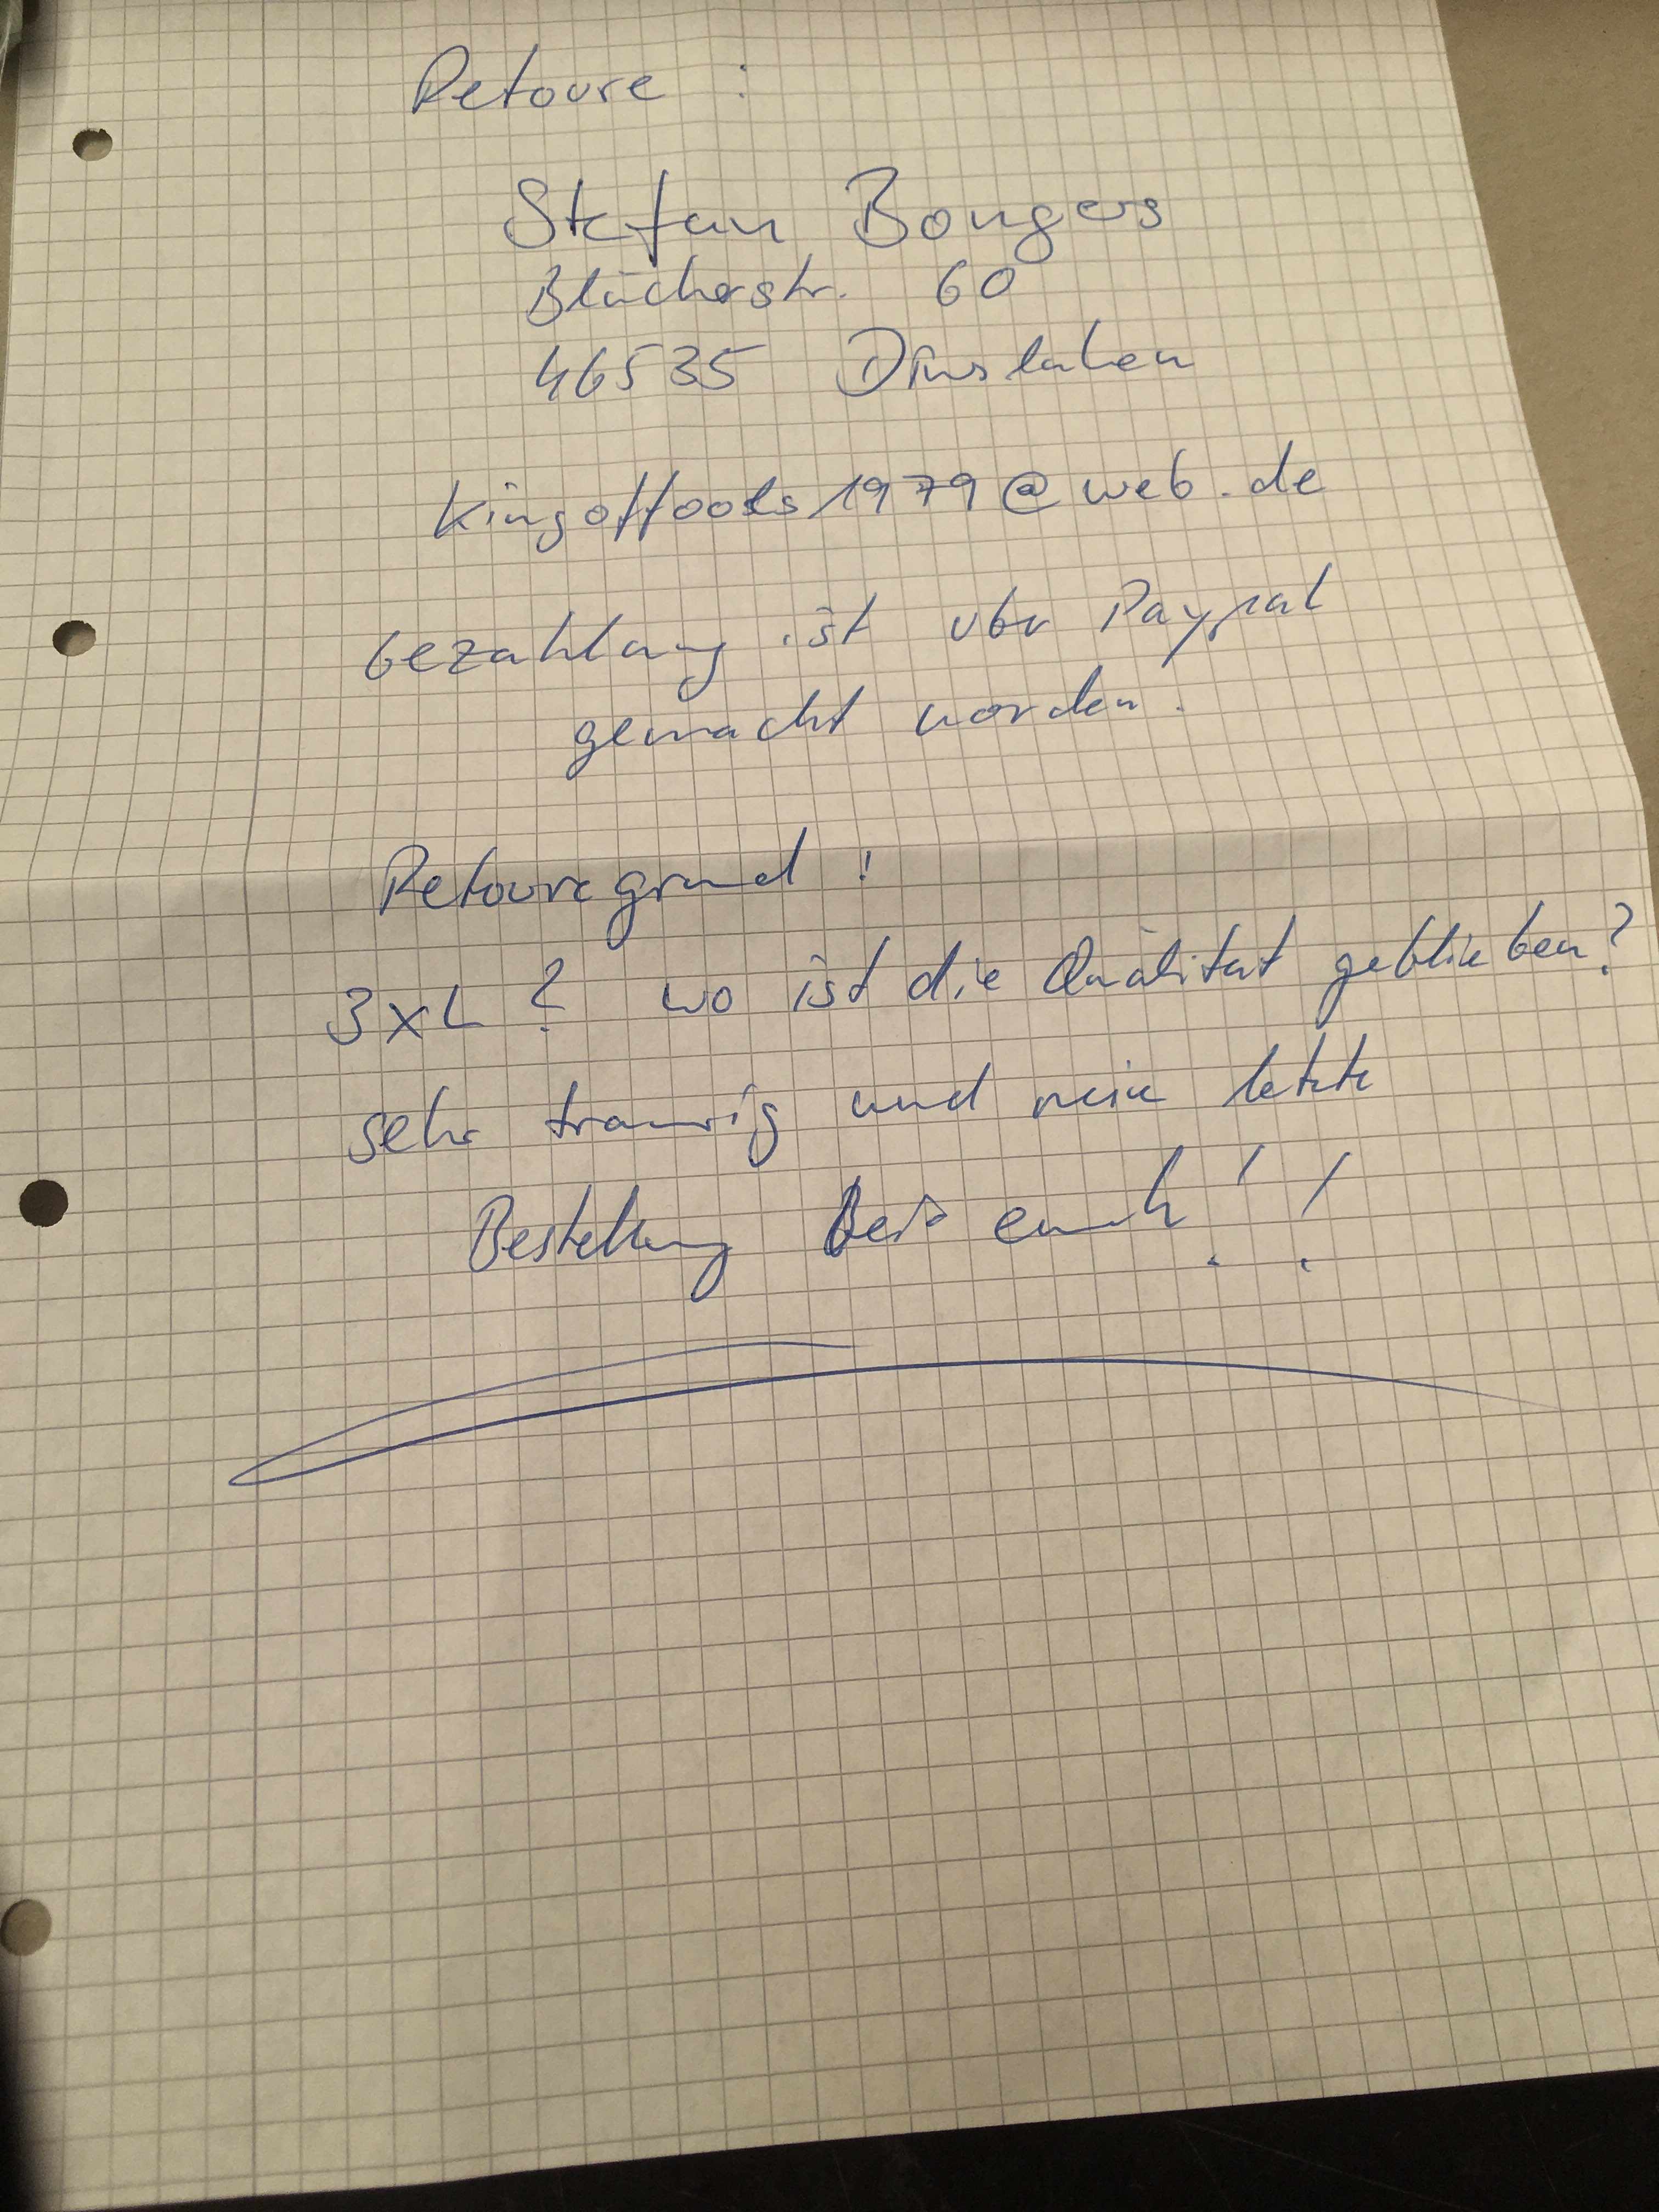 Retoure :
Stefan Bongers
Blücherstr. 60
46535 Dinslaken
kingoffools1979@web.de
bezahlung ist über Paypal
gemacht worden.
Retouregrund !
3XL ? wo ist die Qualität geblieben?
sehr traurig und meine letzte
Bestellung bei euch ! !